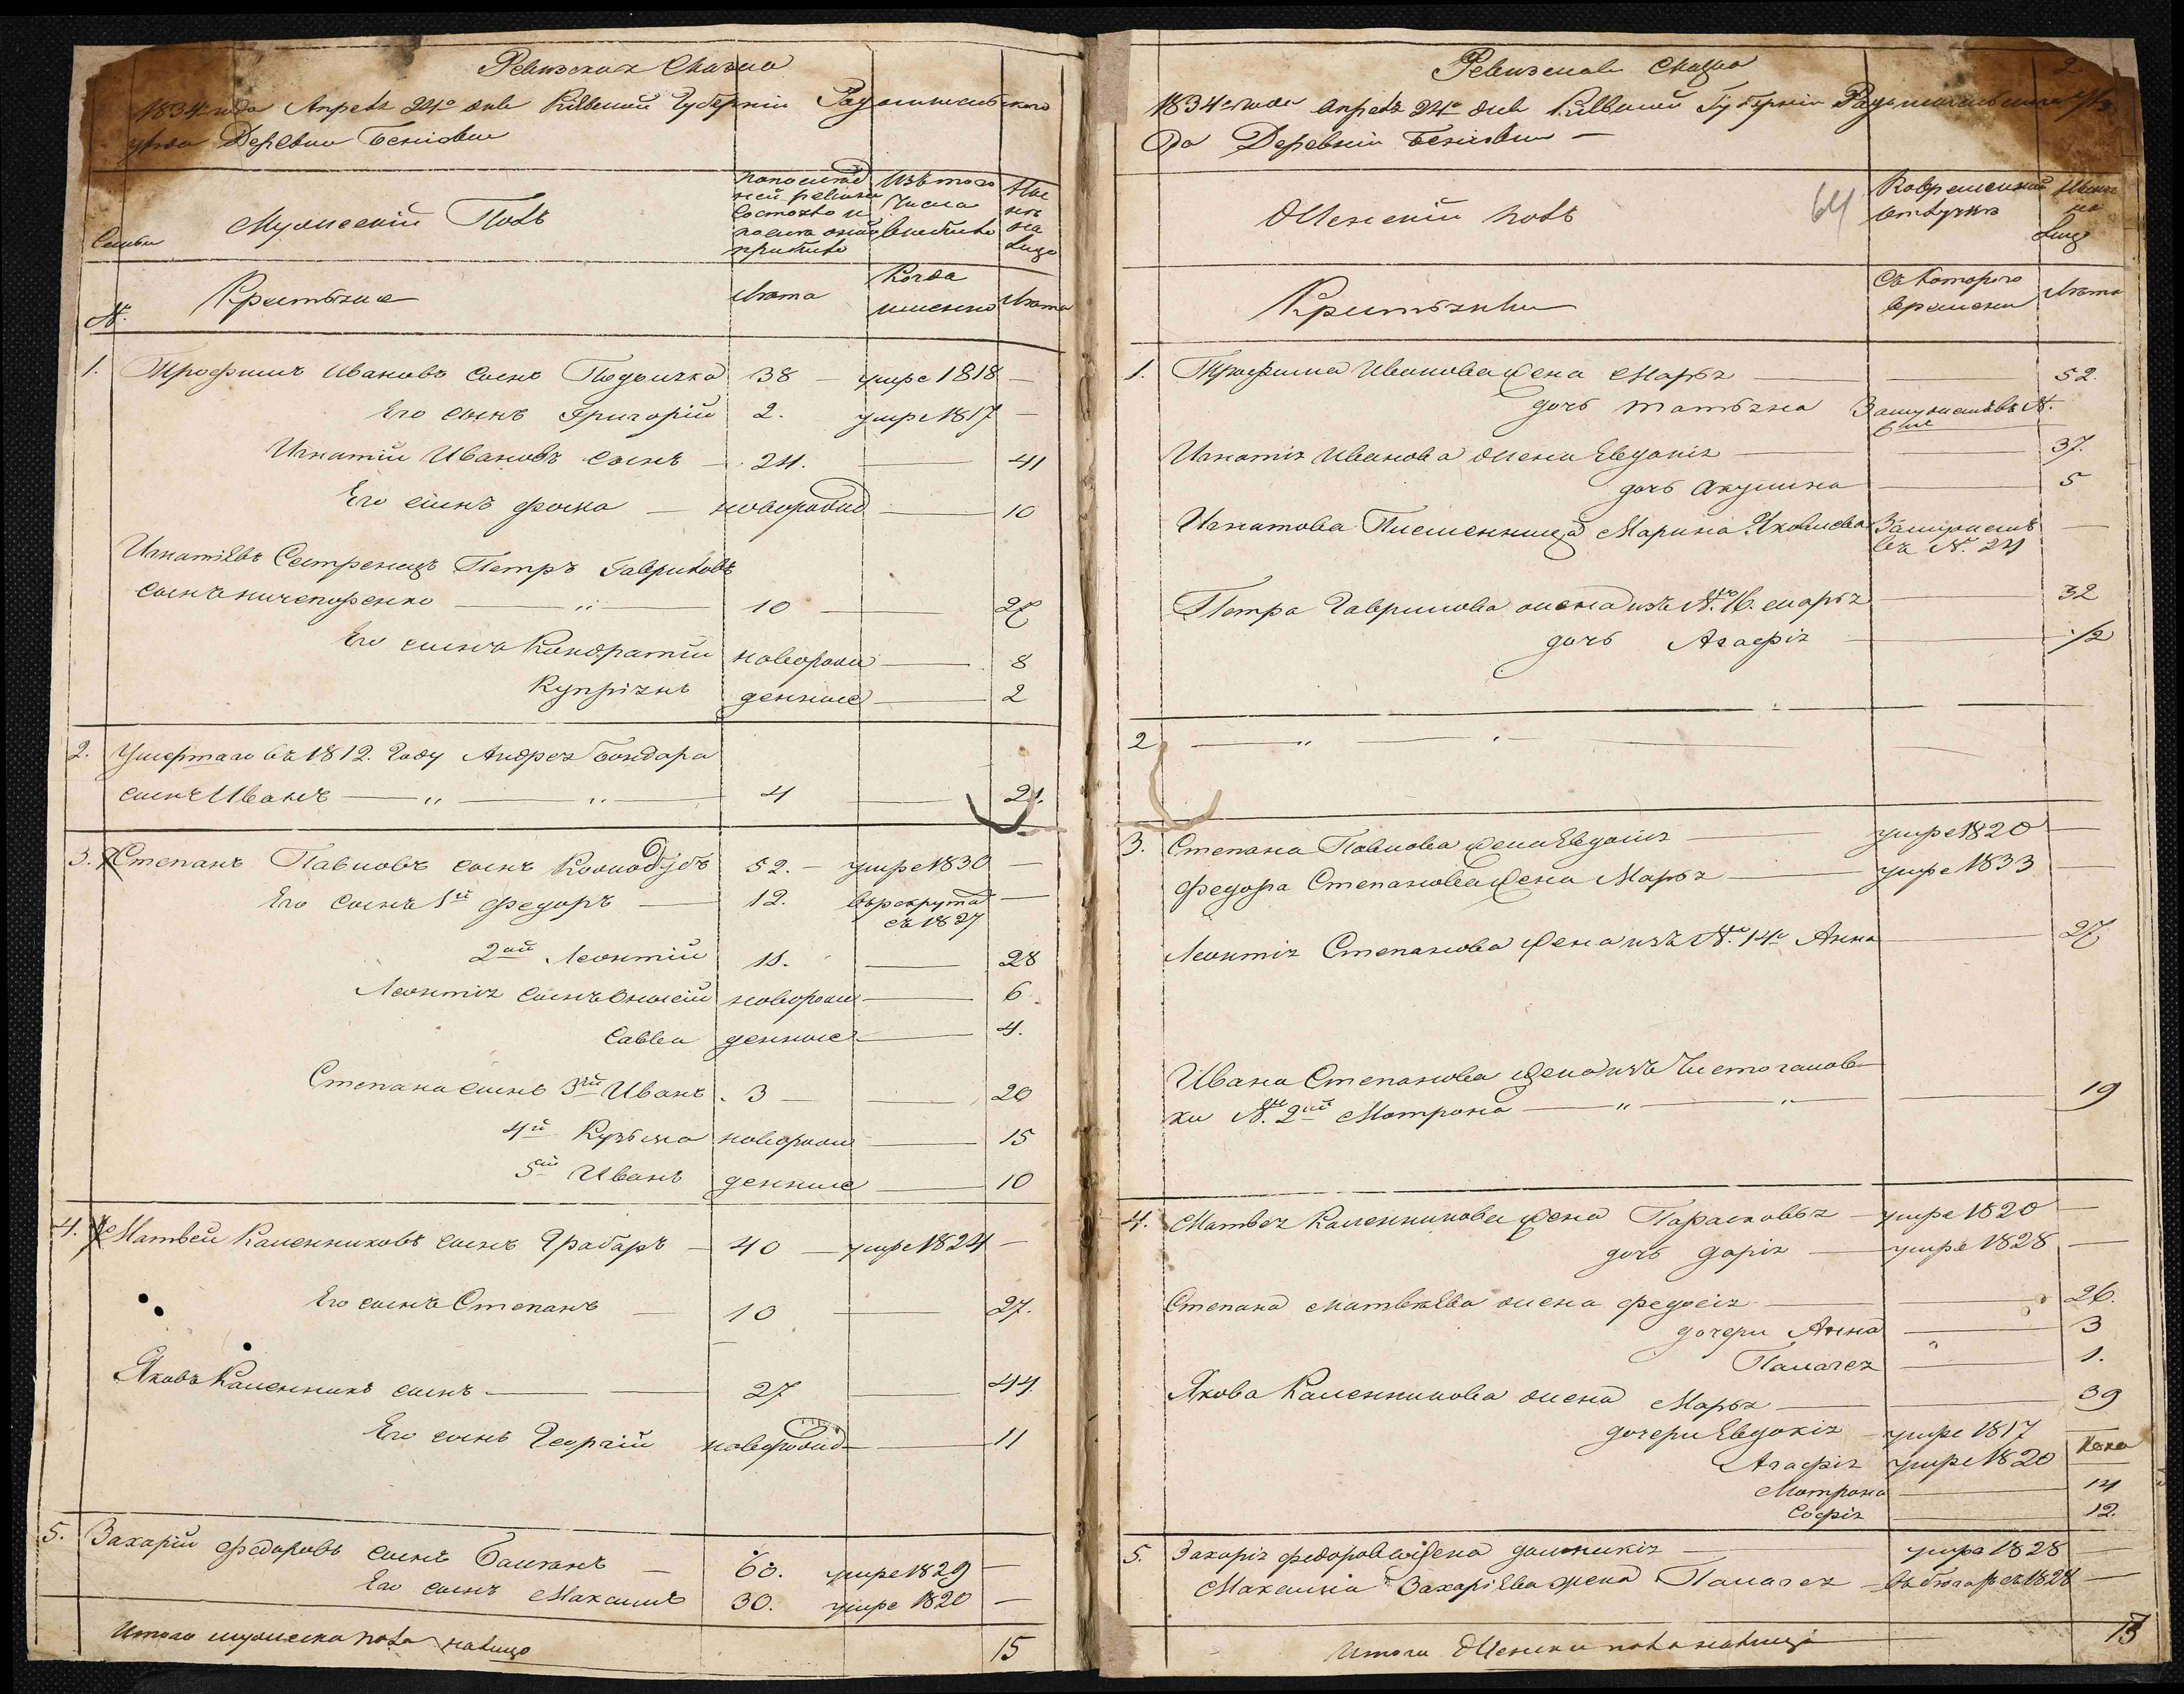 Ревизская Сказка
1834 года Апреля 24го дня Кіевской Губерніи Радомысльского
уѣзда Деревни
Семьи
Мужескій Полъ
По послѣд
ней ревизіи
состояло и
послѣ оной
прибыло
Изъ того
числа
выбыло
Ны
нѣ
на
лицо
№
Крестьяне
Лѣта
Когда
именно
Лѣта
1. Трофимъ Ивановъ сынъ 38 умре 1818 —
Его сынъ Григорій 2. умре 1817 —
Игнатій Ивановъ сынъ — 24. — 41
Его сынъ Фока — новорожд — 10
Игнатіевъ Сестренецъ Петръ Гавриловъ
сынъ Ничепоренко — „ — 10 — 27
Его сынъ Кондратій новорож — 8
Купріянъ денные — 2
2. Умершаго въ 1812. Году Андрея Бондара
сынъ Иванъ — „ — „ — 4 — 21.
3. Степанъ Павловъ сынъ 52. — умре 1830 —
Его сынъ 1й Федоръ — 12. въ рекрута —
съ 1827
2ой Леонтій 11. — 28
Леонтія сынъ новорож — 6
Савва денные — 4.
Степана сынъ 3ій Иванъ 3 — 20
4й Кузьма новорож — 15
5ый Иванъ денные — 10
4. Матвей Калениковъ сынъ Грабаръ — 40 — умре 1824 —
Его сынъ Степанъ — 10 — 27.
Яковъ Каленниковъ сынъ — 27 — 44
Его сынъ Георгій новорожд — 11
5. Захарій Федоровъ сынъ Баштанъ — 60. умре 1829 —
Его сынъ Максимъ 30. умре 1820 —
Итого мужеска пола налицо 15
Ревизская Сказка 2
1834 года Апреля 24го дня Кіевской Губерніи Радомысльского уѣз
да Деревни —
Женскій полъ
64
Во временной
отлучкѣ
Ныне
на
лицо
Крестьянки
Съ котораго
времени
Лѣта
1. Трофима Иванова жена Марья — 52.
дочь Татьяна Замужемъ въ №.
Игнатія Иванова жена Евдокія — 37.
дочь Акулина — 5
Игнатова Племенница Марина Яковлева Замужемъ —
въ №. 24
Петра Гаврилова жена изъ №. 16. Марья — 32
дочь Агафія — 1/2
2 — „ —
3. Степана Павлова жена Евдокія — умре 1820 —
Федора Степанова жена Марья — умре 1833 —
Леонтія Степанова жена изъ №. 14го Анна — 27
Ивана Степанова жена изъ Чистогалов
ки №. 2й Матрона — „ — „ — 19
4. Матвея Каленникова жена Парасковья — умре 1820 —
дочь Дарія — умре 1828 —
Степана Матвеева жена Федосія — 26.
дочери Анна — 3
Палагея — 1.
Якова Каленникова жена Марья — 39
дочери Евдокія — умре 1817 —
Агафія умре 1820
Матрона — 14
Софія — 12.
5. Захарія Федорова жена — умре 1828 —
Максима Захаріева жена Палагея — съ 1828 —
Итого Женска пола налицо 13